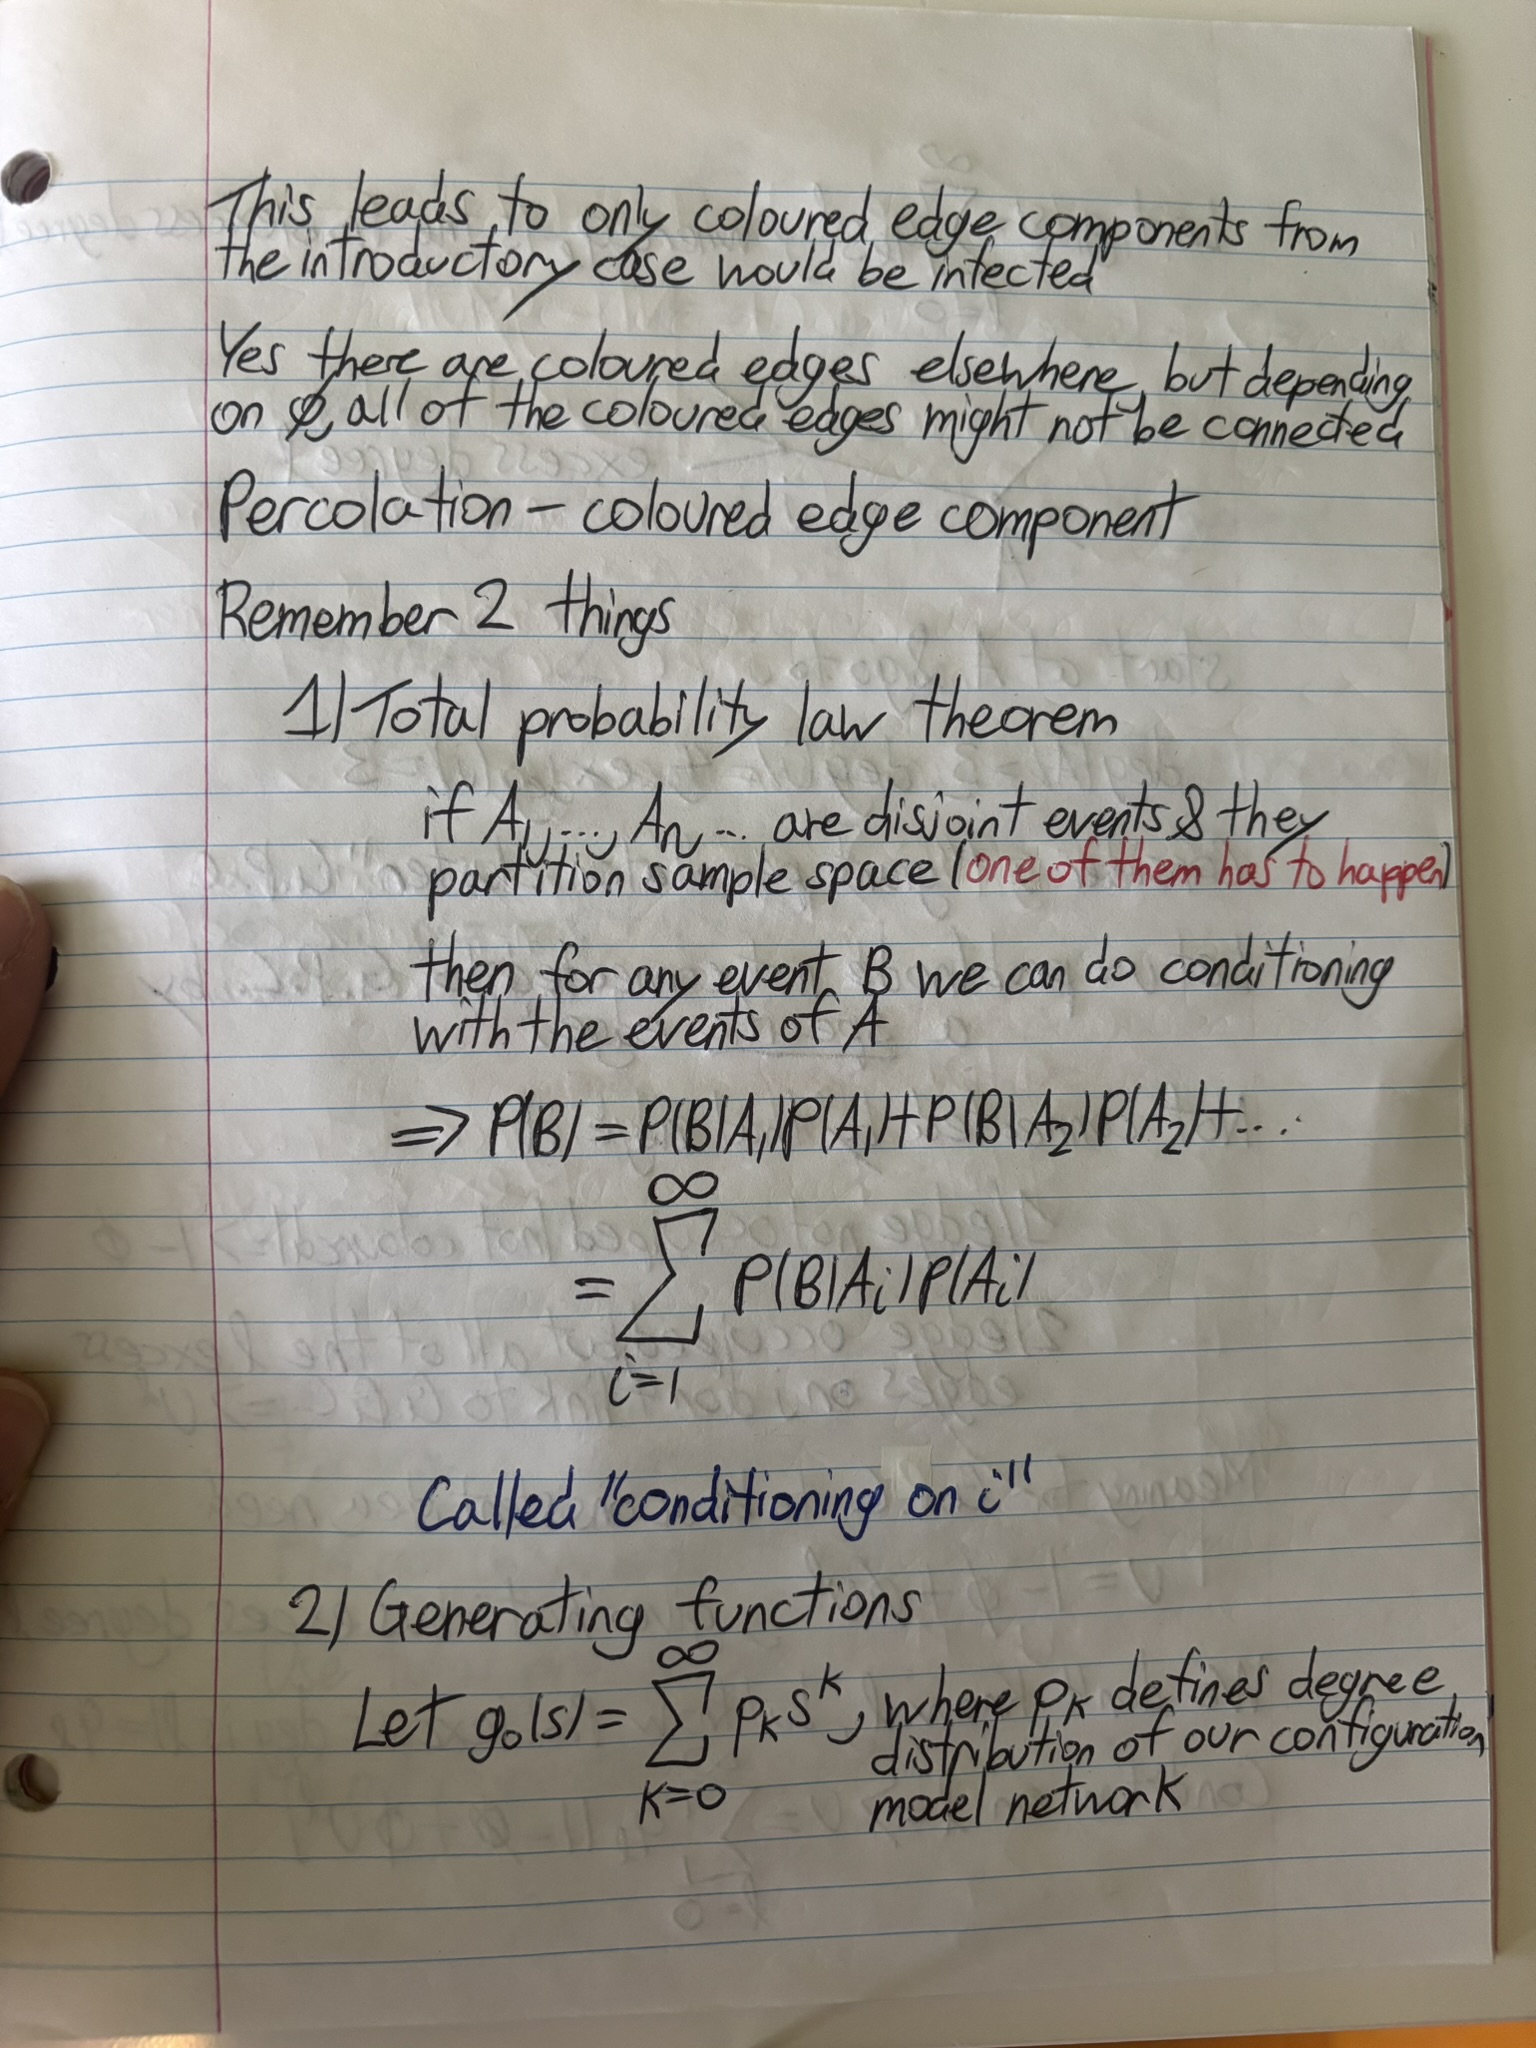 This leads to only coloured edge components from
the introductory case would be infected
Yes there are coloured edges elsewhere, but depending
on φ, all of the coloured edges might not be connected
Percolation – coloured edge component
Remember 2 things
1) Total probability law theorem
if A₁, ..., Aₙ, ... are disjoint events & they
partition sample space (one of them has to happen)
then for any event B we can do conditioning
with the events of A
⇒ P(B) = P(B|A₁)P(A₁) + P(B|A₂)P(A₂) + ...
= ∑_{i=1}^{∞} P(B|Aᵢ)P(Aᵢ)
Called "conditioning on i"
2) Generating functions
Let g₀(s) = ∑_{k=0}^{∞} pₖsᵏ, where pₖ defines degree
distribution of our configuration
model network